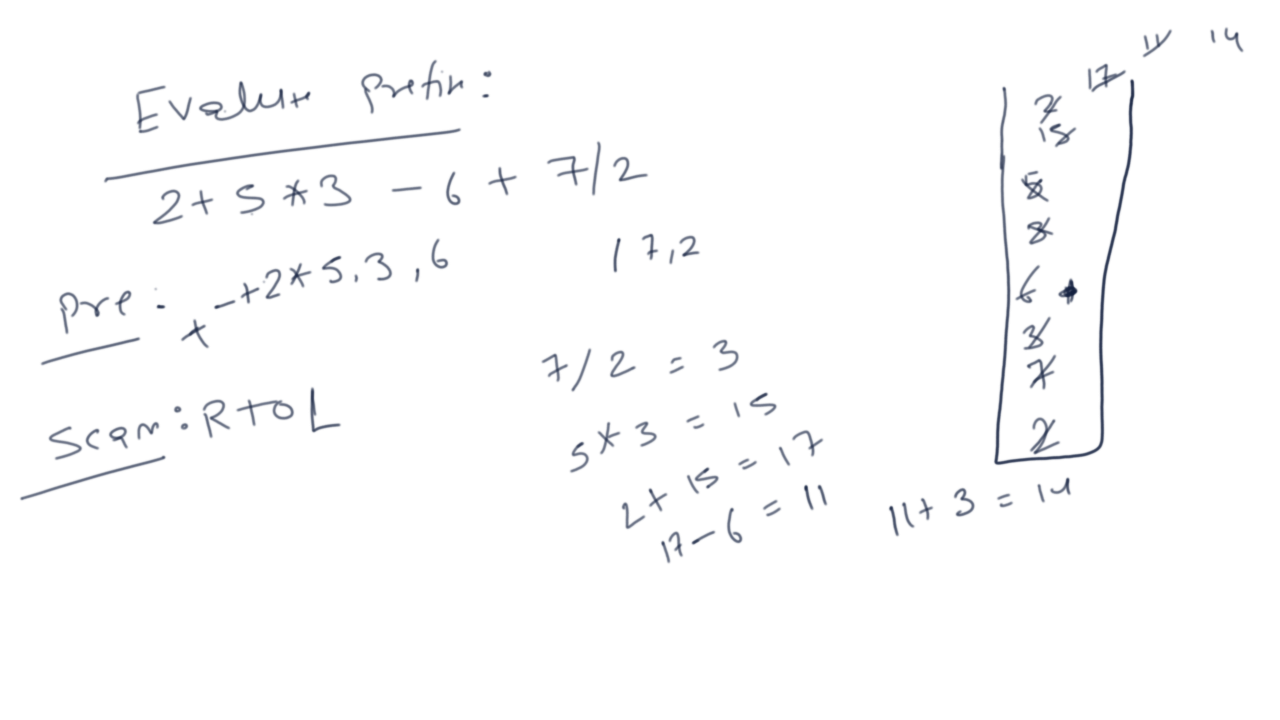 Evaluate Prefix:
2 + 5 * 3 - 6 + 7/2
Pre: + - + 2 * 5, 3, 6 / 7, 2
Scan: R to L
7/2 = 3
5 * 3 = 15
2 + 15 = 17
17 - 6 = 11
11 + 3 = 14
11 14
17
2
15
5
3
6
3
7
2